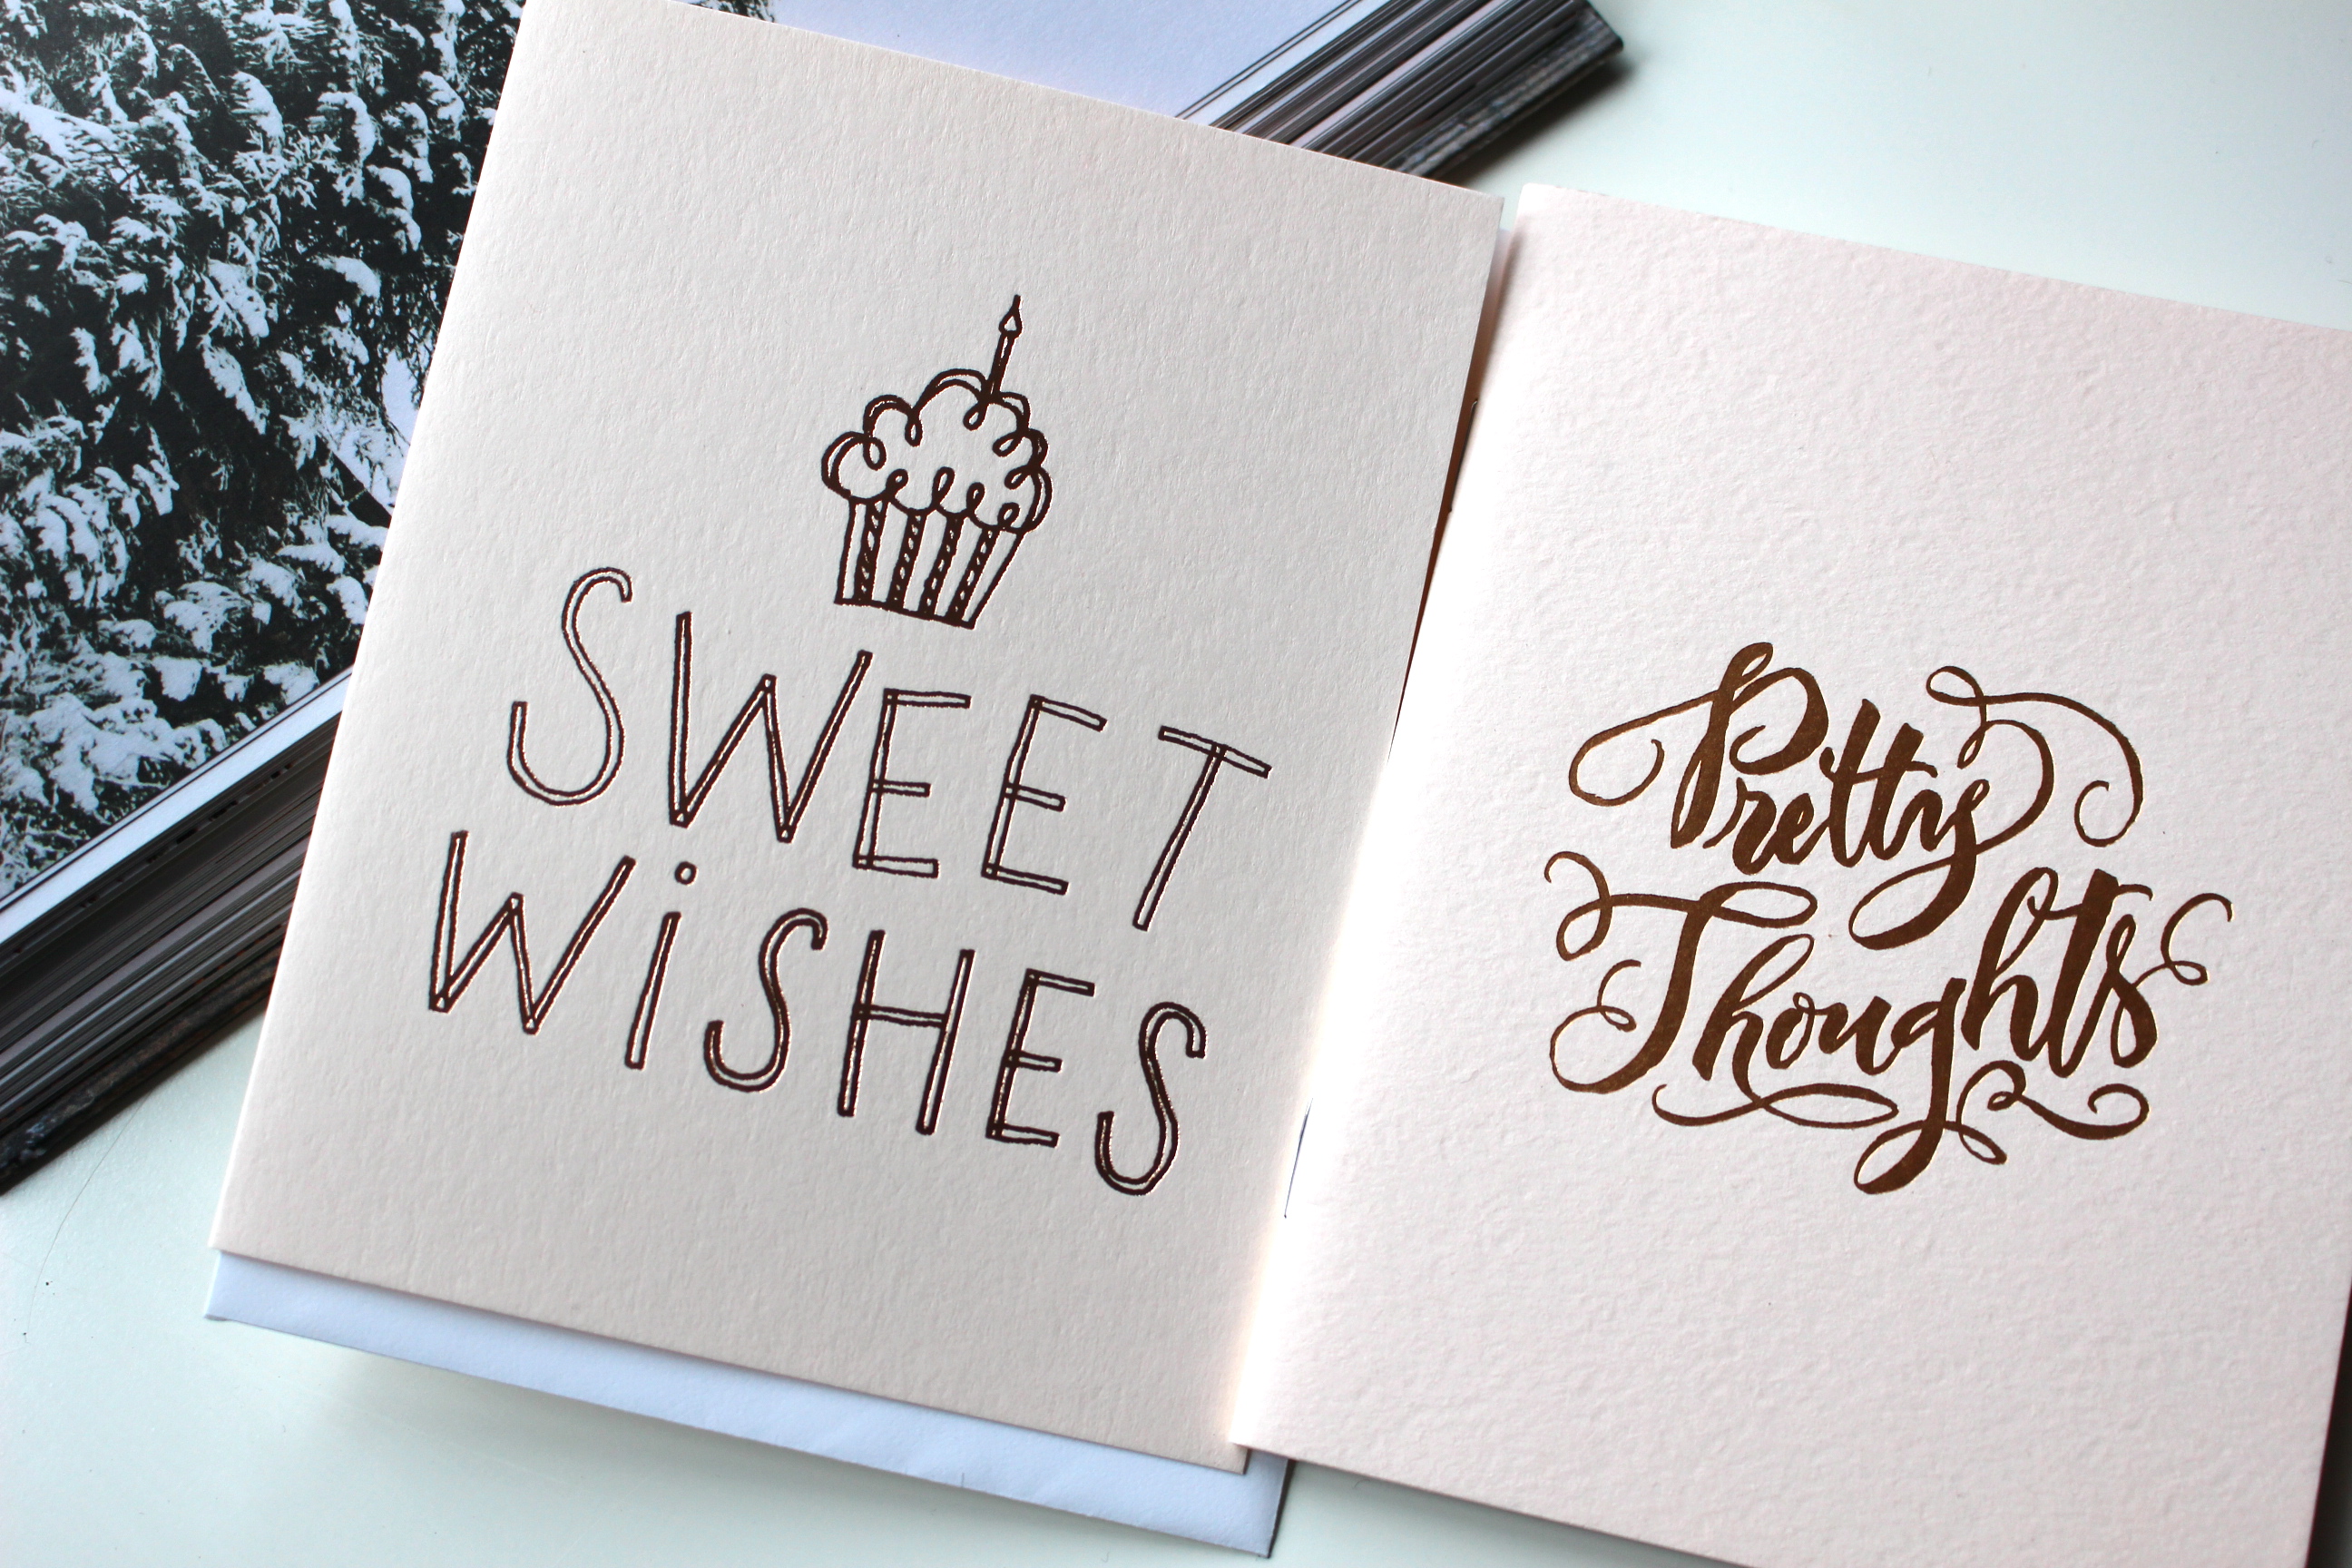 SWEET
WiSHES
Pretty
Thoughts